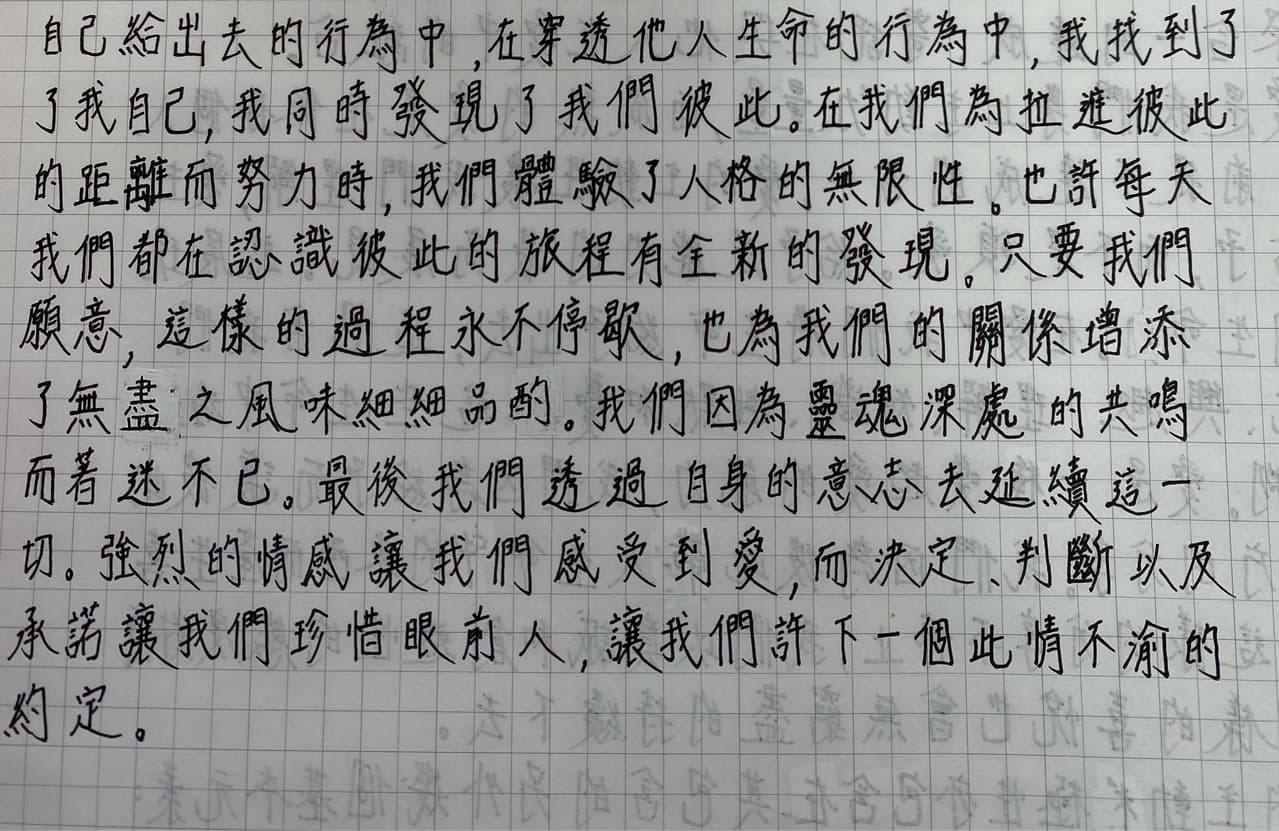 自己給出去的行為中,在穿透他人生命的行為中,我找到了
了我自己,我同時發現了我們彼此。在我們為拉進彼此
的距離而努力時,我們體驗了人格的無限性。也許每天
我們都在認識彼此的旅程有全新的發現。只要我們
願意,這樣的過程永不停歇,也為我們的關係增添
了無盡之風味細細品酌。我們因為靈魂深處的共鳴
而著迷不已。最後我們透過自身的意志去延續這一
切。強烈的情感讓我們感受到愛,而決定、判斷以及
承諾讓我們珍惜眼前人,讓我們許下一個此情不渝的
約定。